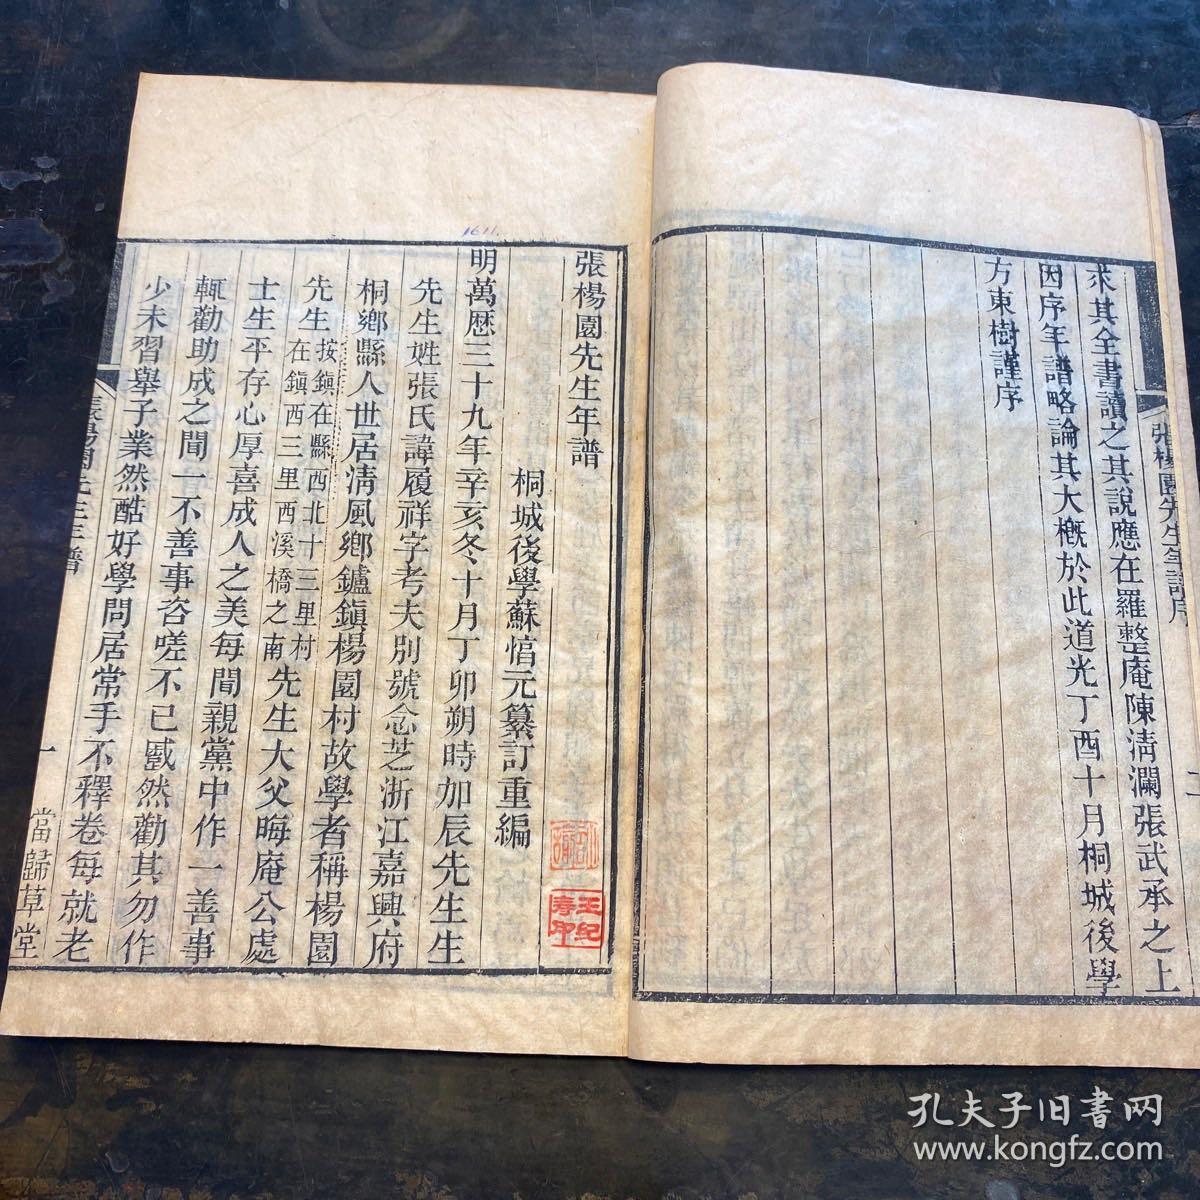 求其全書讀之其說應在羅整庵陳清瀾張武承之上
因序年譜略論其大槪於此道光丁酉十月桐城後學
方東樹謹序
張楊園先生年譜序
二
張楊園先生年譜
桐城後學蘇惇元纂訂重編
1611.
明萬歷三十九年辛亥冬十月丁卯朔時加辰先生生
先生姓張氏諱履祥字考夫別號念芝浙江嘉興府
桐鄉縣人世居清風鄉鑪鎮楊園村故學者稱楊園
先生按鎮在縣西北十三里村在鎮西三里西溪橋之南先生大父晦庵公處
士生平存心厚喜成人之美每聞親黨中作一善事
輒勸助成之聞一不善事咨嗟不已慼然勸其勿作
少未習舉子業然酷好學問居常手不釋卷每就老
張楊園先生年譜
一
當歸草堂
王紀
壽甲
孔夫子旧书网
www.kongfz.com